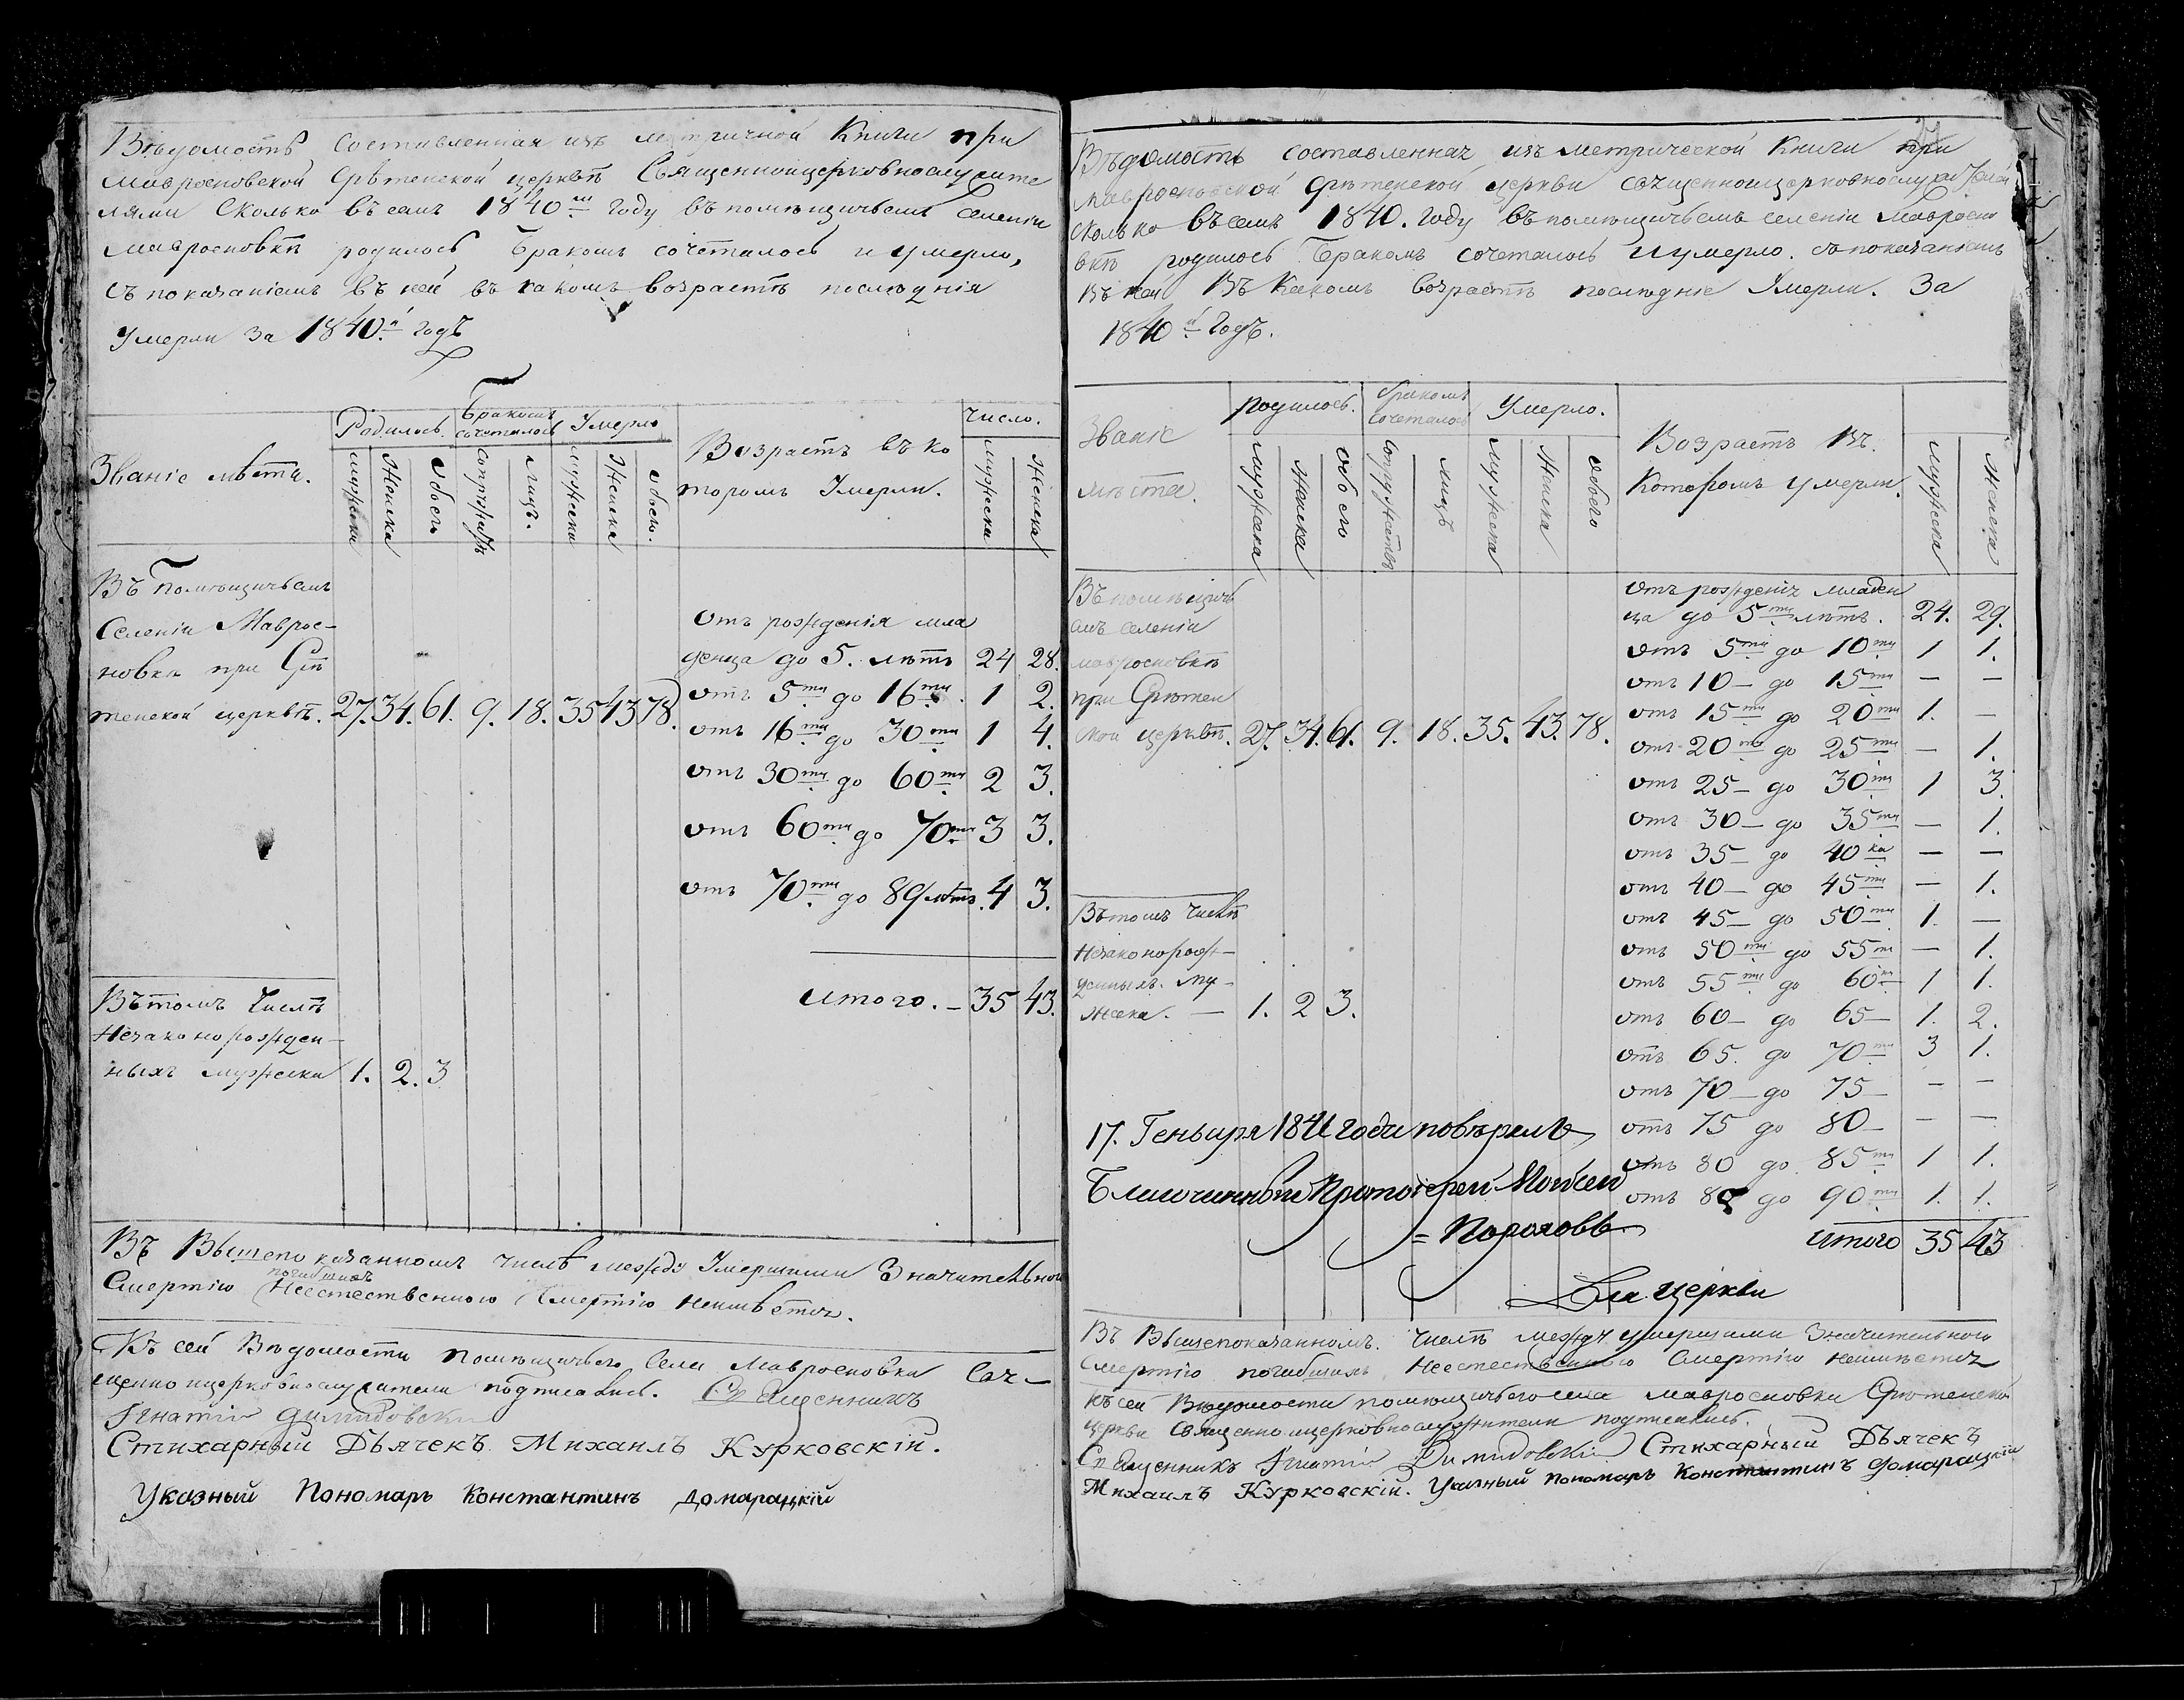 Вѣдомость составленная изъ метричной Книги при
Мавросновской Срѣтенской церквѣ Священноицерковнослужите
лями Сколько въ семъ 1840мъ Году въ помѣщичьемъ селеніи
Мавросновкѣ родилось Бракомъ сочеталось и умерло,
съ показаніемъ въ ней въ какомъ возрастѣ послѣднія
Умерли за 1840й годъ
Званіе мѣста.
Родилось.
Бракомъ сочеталось
Умерло
Возрастъ въ ко
торомъ Умерли.
Число.
мужеска
Женска
Обоего
Супружествъ
Лицъ.
мужеска
Женска
обоего.
мужеска
Женска
Въ Помѣщичьемъ
Селеніи Мавросновкѣ при Срѣ
тенской церквѣ. 27. 34. 61. 9. 18. 35 43 78.
Отъ рожденія мла
денца до 5. лѣтъ 24 28.
отъ 5ти до 16ти. 1 2.
отъ 16ти до 30ти 1 4.
отъ 30ти до 60ти 2 3.
отъ 60ти до 70ти 3 3.
отъ 70ти до 89 лѣтъ. 4 3.
Итого. — 35 43.
Въ томъ Числѣ
Незаконорожден—
ныхъ мужеска 1. 2. 3
Въ Вышепоказанномъ числѣ между Умершими Значительною
Смертію погибшихъ Неестественною Смертію неимѣется.
Къ сей Вѣдомости помѣщичьего Села Мавросновки Свя—
щенно ицерковнослужители подписались. Священникъ
Игнатій Димидовскій
Стихарный Дьячекъ Михаилъ Курковскій.
Указный Пономарь Константинъ Домарацкій
Вѣдомость составленная изъ метрической Книги при
Мавросновской Срѣтенской церкви священноицерковнослужителями
сколько въ семъ 1840. году въ помѣщичьемъ селеніи Мавросно
вкѣ родилось Бракомъ сочеталось и умерло. съ показаніемъ
въ ней Въ Какомъ возрастѣ послѣдніе Умерли. За
1840й Годъ.
Званіе
мѣста.
родилось.
бракомъ
сочеталось
Умерло.
Возрастъ Въ.
Которомъ умерли.
мужеска
Женска
обоего
супружествъ
лицъ
мужеска
Женска
обоего
мужеска
Женска
Въ помѣщичь
емъ селеніи
мавросновкѣ
при Срѣтен
ской церквѣ. 27. 34. 61. 9. 18. 35. 43. 78.
отъ рожденія младен
ца до 5ти лѣтъ. 24. 29.
отъ 5ти до 10ти 1 1.
отъ 10 — до 15ти — —
отъ 15ти до 20ти 1. —
отъ 20ти до 25ти — 1.
отъ 25 — до 30ти 1 3.
отъ 30 — до 35ти — 1.
отъ 35 — до 40ка — —
отъ 40 — до 45ти — 1.
отъ 45 — до 50ти 1. —
отъ 50ти до 55ти — 1.
отъ 55ти до 60ти 1 1.
отъ 60 — до 65 — 1. 2.
отъ 65. до 70ти 3 1.
отъ 70 — до 75 — — —
отъ 75 до 80 — — —
отъ 80 до 85ти 1 1.
отъ 85 до 90ти 1. 1.
Итого 35 43
Въ томъ числѣ
Незаконорож—
денныхъ. му—
жеска. — 1. 2 3.
17. Генваря 1841 года повѣрялъ
Благочинный Протоіерей Моисей
= Пороховъ
Для церкви
Въ Вышепоказанномъ. числѣ между умершими Значительного
смертію погибшихъ Неестественною Смертію неимѣется
Къ сей Вѣдомости помѣщичьего села Мавросновки Срѣтенской
церкви Священноицерковнослужители подписались.
Священникъ Игнатій Димидовскій Стихарный Дьячекъ
Михаилъ Курковскій. Указный Пономарь Константинъ Домарацкій